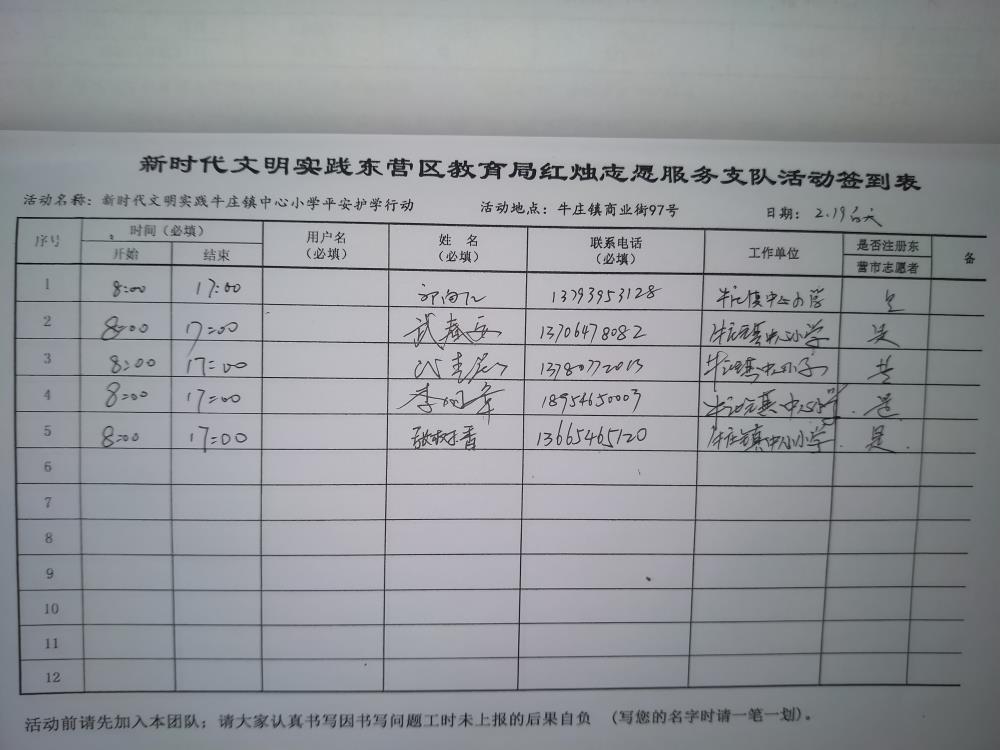 新时代文明实践东营区教育局红烛志愿服务支队活动签到表
活动名称：新时代文明实践牛庄镇中心小学平安护学行动 活动地点：牛庄镇商业街97号 日期：2.19白天
序号 时间（必填） 用户名（必填） 姓 名（必填） 联系电话（必填） 工作单位 是否注册东营市志愿者 备
开始 结束
1 8:00 17:00 13793953128 牛庄镇中心小学 是
2 8:00 17:00 武春 13706478082 牛庄镇中心小学 是
3 8:00 17:00 13780772013 牛庄镇中心小学 是
4 8:00 17:00 李 18954650003 牛庄镇中心小学 是
5 8:00 17:00 张树香 13665465120 牛庄镇中心小学 是
6
7
8
9
10
11
12
活动前请先加入本团队；请大家认真书写因书写问题工时未上报的后果自负 （写您的名字时请一笔一划）。